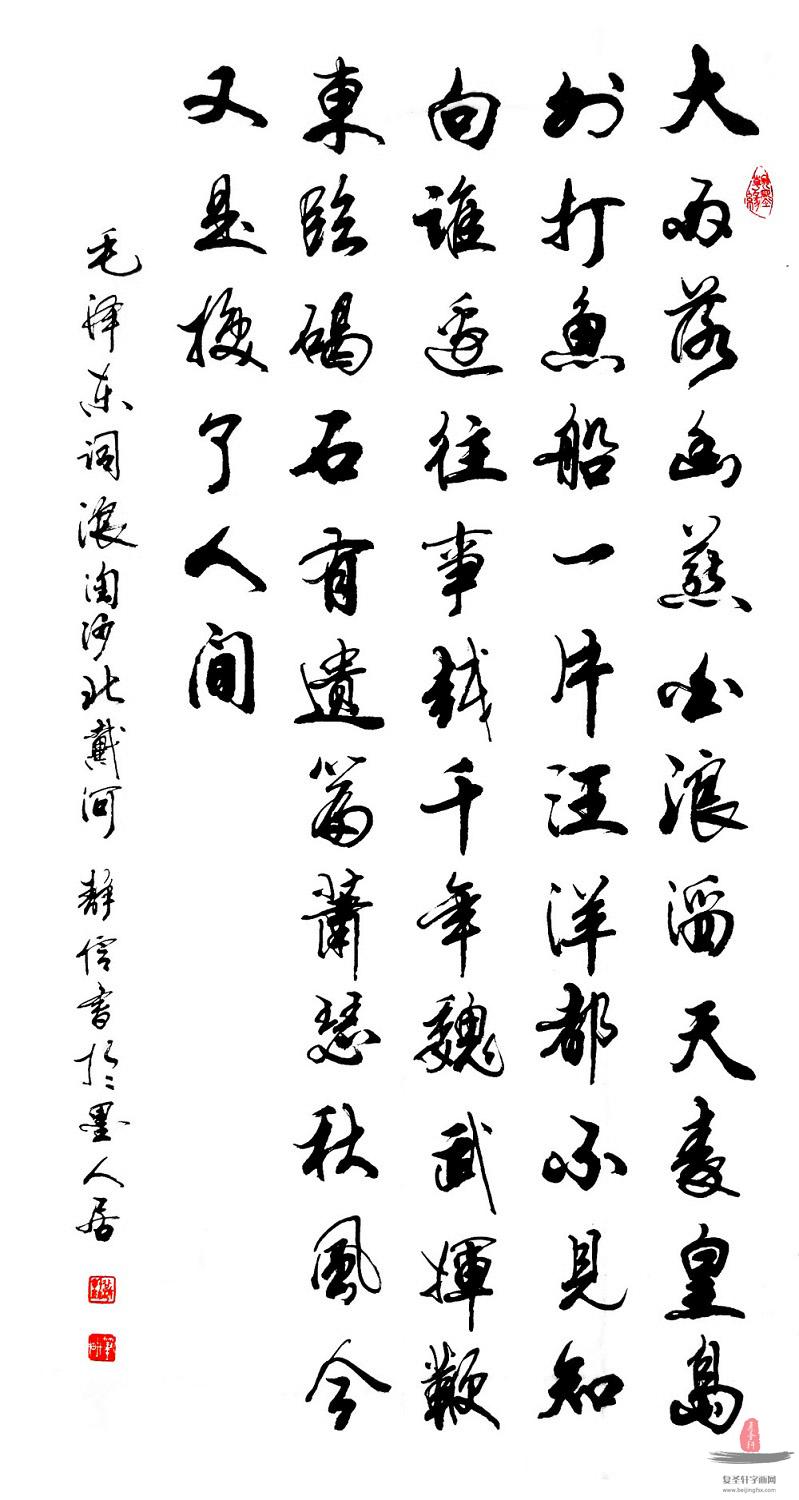 大雨落幽燕白浪滔天秦皇島
外打魚船一片汪洋都不見知
向誰邊往事越千年魏武揮鞭
東臨碣石有遺篇蕭瑟秋風今
又是換了人間
毛泽东词浪淘沙北戴河 静信書於墨人居
复圣轩字画网
www.beijingfsx.com